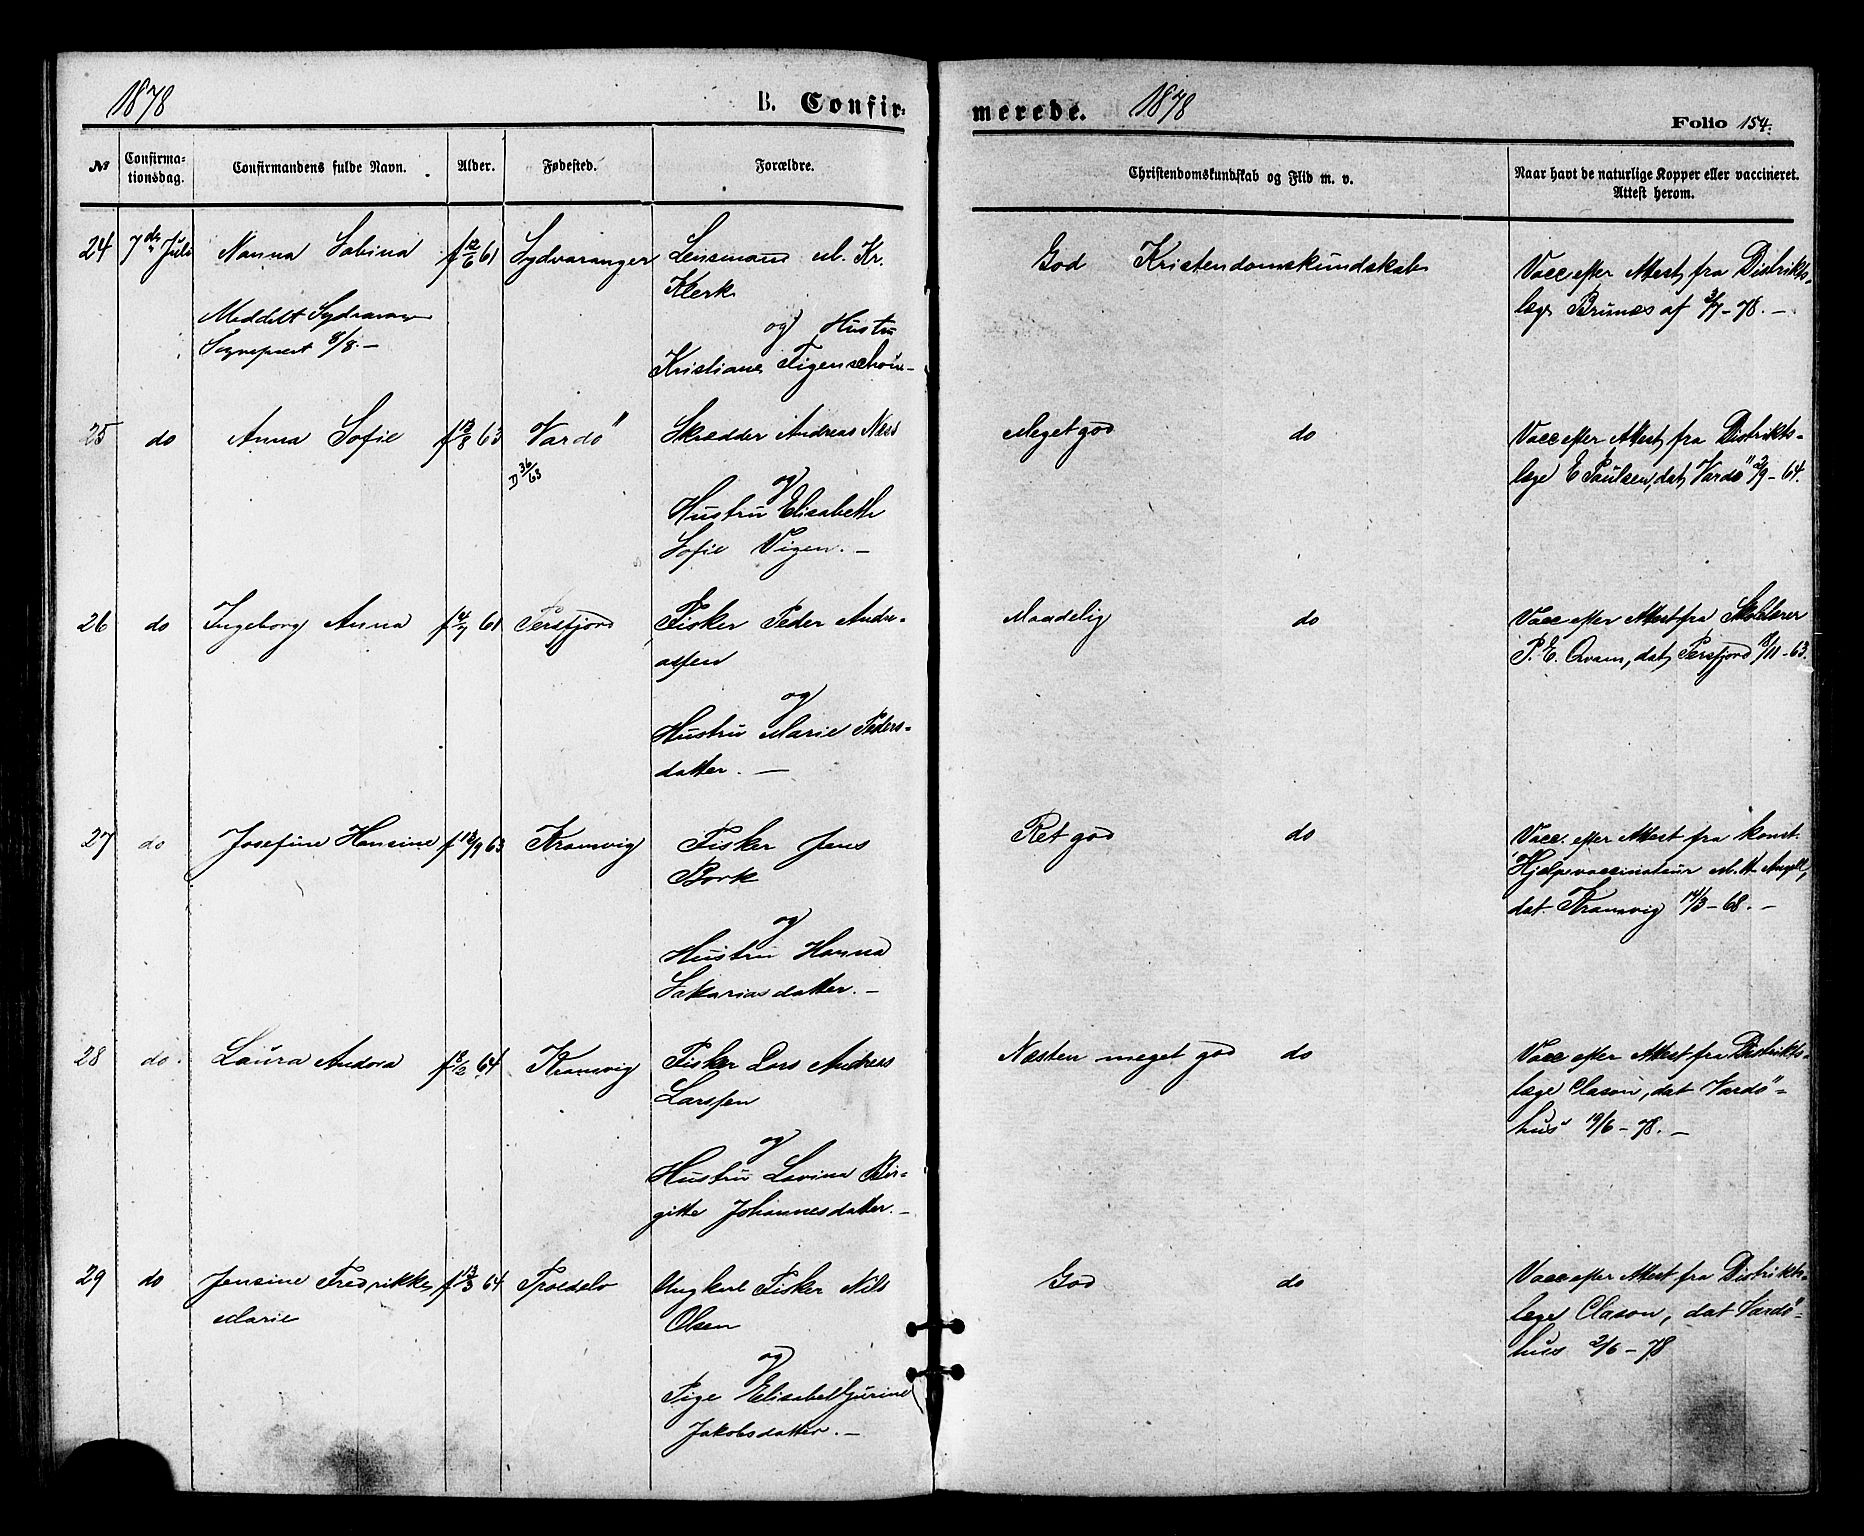 1878
B. Confir-
merede.
1878
Folio 154.
№
Confirma-
tionsdag.
Confirmandens fulde Navn.
Alder.
Fødested.
Forældre.
Christendomskundskab og Flid m. v.
Naar havt de naturlige Kopper eller vaccineret.
Attest herom.
24 7de Juli Nanna Sabina f 12/6 61 Sydvaranger Lensmand M. Kr.
Klerk
og Hustru
Kristiane Figenschou
Meddelt Sydvaranger
Sognepræst 8/8.—
God Kristendomskundskab
Vacc efter Attest fra Distrikts-
læge Brunæs af 3/7 - 78. —
25 do Anna Sofie f 13/8 63 Vardö
D 36/63
Skrædder Andreas Næss
og
Hustru Elisabeth
Sofie Vigen. —
Meget god do
Vacc efter Attest fra Distrikts-
læge E Paulsen, dat, Vardö 2/9 - 64.
26 do Ingeborg Anna f 4/7 61 Persfjord
Fisker Peder Andre-
assen
og
Hustru Marie Peders-
datter. —
Maadelig do
Vacc efter Attest fra Skolelærer
P. E. Qvam, dat, Persfjord /11 - 63.
27 do Josefine Hansine f 18/9 63 Kramvig
Fisker Jens
Bork
og
Hustru Hanna
Sakariasdatter. —
Ret god do
Vacc. efter Attest fra konst.
Hjælpevaccinateur M. A. Angell,
dat. Kramvig 14/3 - 68. —
28 do. Laura Andora f /2 64 Kramvig
Fisker Lars Andreas
Larssen
og
Hustru Lovina Bir-
gitte Johannesdatter. —
Næsten meget god do
Vacc efter Attest fra Distrikts-
læge Clason, dat Vardö-
hus 19/6 - 78. —
29 do Jensine Fredrikke f 13/3 64
Marie
Ungkarl Fisker Nils
Olsen
og
Pige Elisabet Gurine
Jakobsdatter. —
God do
Vacc efter Attest fra Distrikts-
læge Clason, dat Vardö-
hus 2/6 - 78